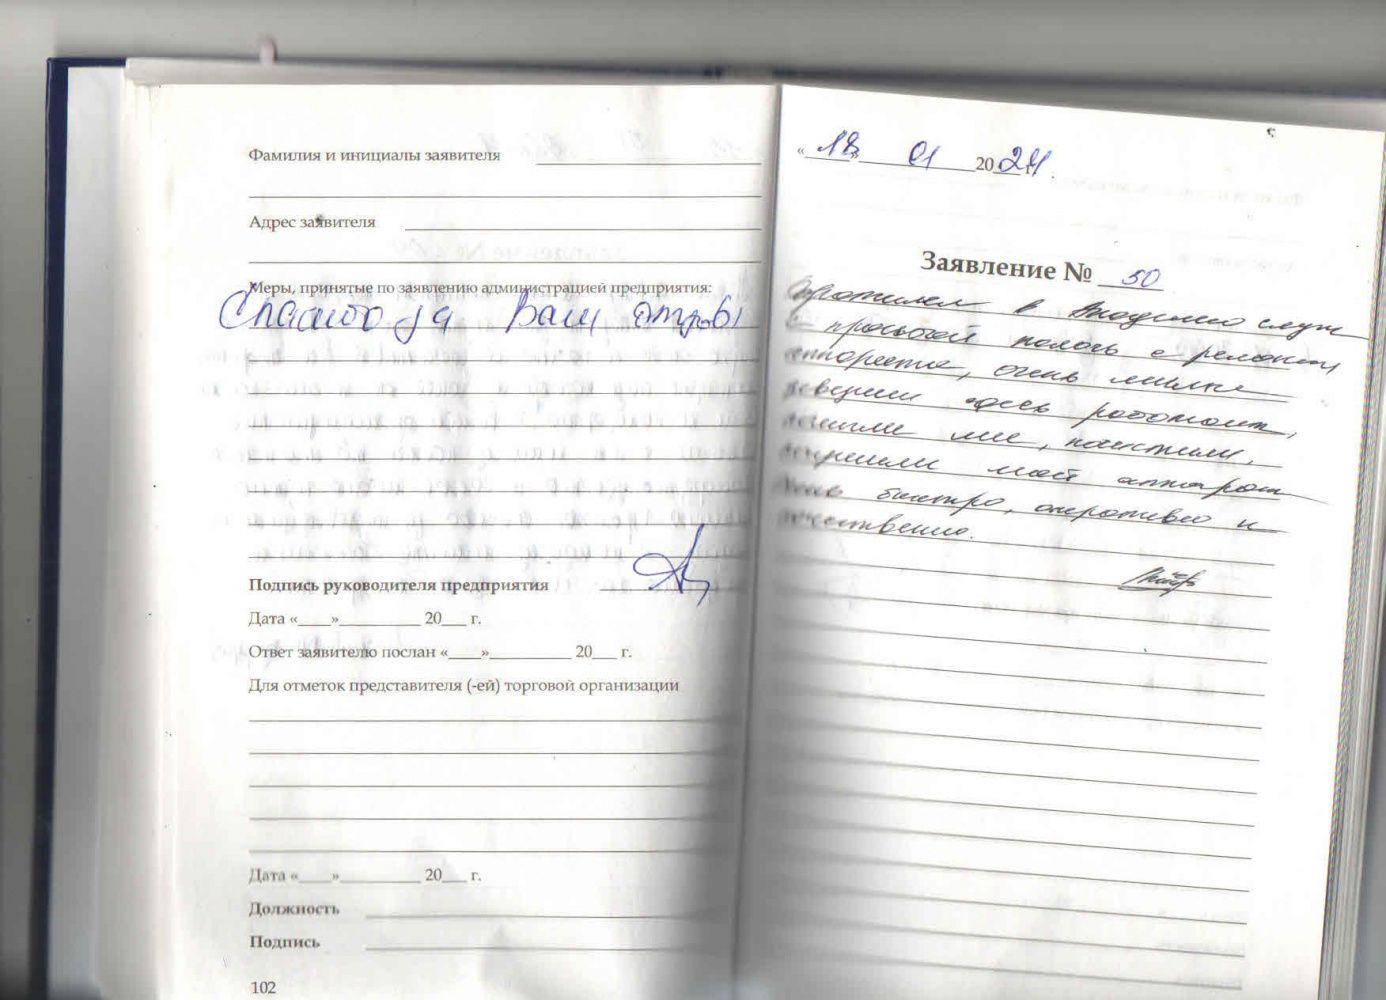 Фамилия и инициалы заявителя
Адрес заявителя
Меры, принятые по заявлению администрацией предприятия:
Спасибо за Ваш отзыв!
Подпись руководителя предприятия
Дата «___»__________ 20___ г.
Ответ заявителю послан «____»__________ 20___ г.
Для отметок представителя (-ей) торговой организации
Дата «____»__________ 20___ г.
Должность
Подпись
102
«18» 01 2024 г.
Заявление № 50
Обратилась в Академию слуха
с просьбой помочь с ремонтом
аппарата, очень милые
девушки здесь работают,
помогли мне, почистили,
мой аппарат
быстро, оперативно и
качественно.